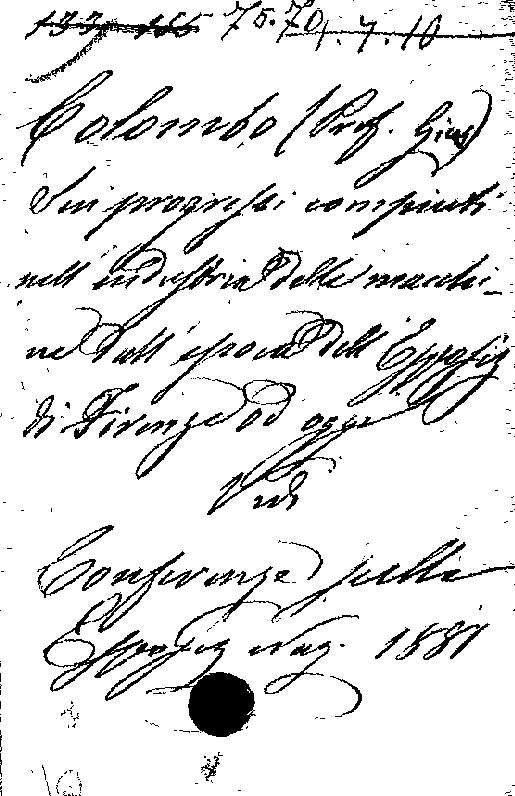 133. 155 75.70. 4. 7. 10
Colombo (Prof. Gius)
Sui progressi compiuti
nell' industria delle macchi-
ne dall' epoca dell' Esposiz
di Firenze ad oggi
Vedi
Conferenze sulla
Esposiz naz. 1881